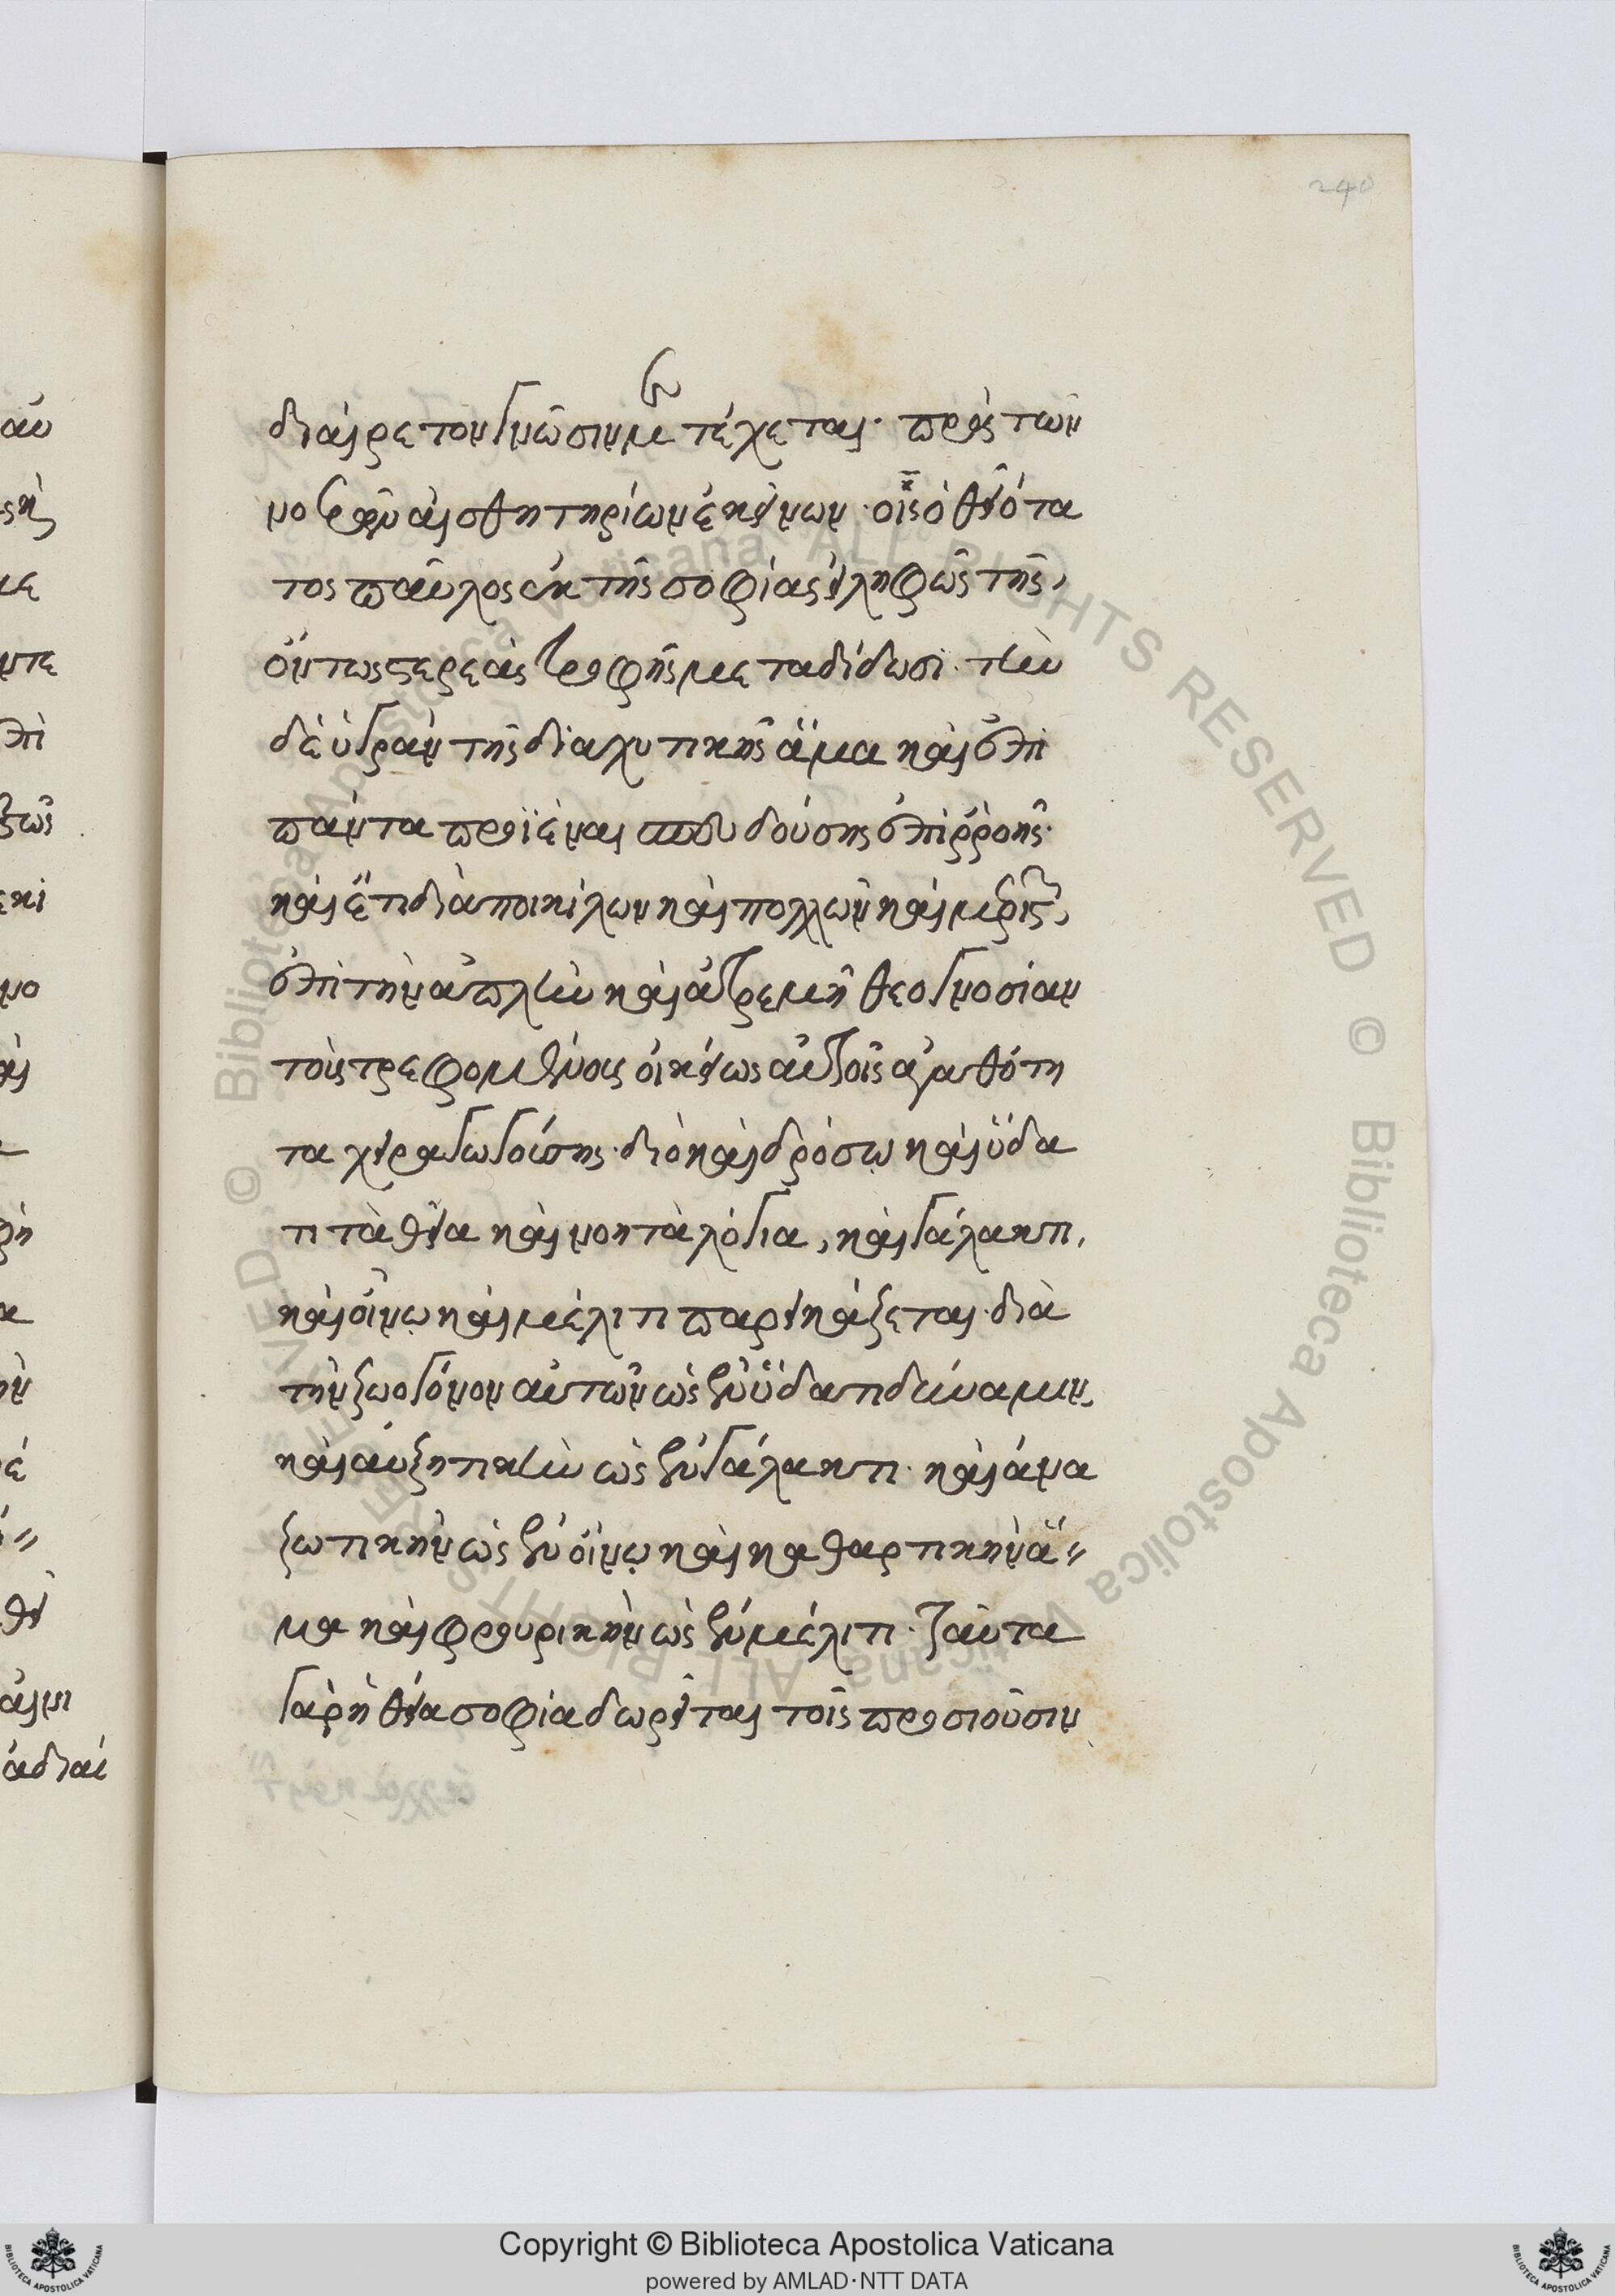 240
διαίρετον γνῶσιν μετέχεται· πρὸς τῶν
νοερῶν αἰσθητηρίων ἐκείνων· οἷς ὁ θειότα
τος παῦλος ἐκ τῆς σοφίας εἰληφὼς τῆς,
ὄντως στερεᾶς τροφῆς μεταδίδωσι· τὴν
δὲ ὑγρὰν τῆς διαχυτικῆς ἅμα καὶ ἐπὶ
πάντα προϊέναι σπευδούσης ἐπιῤῥοῆς·
καὶ ἔτι διὰ ποικίλων καὶ πολλῶν καὶ μεριστῶν,
ἐπὶ τὴν ἁπλῆν καὶ ἀτρεμῆ θεογνοσίαν
τοὺς τρεφομένους οἰκείως αὐτοῖς ἀγαθότη
τα χειραγωγούσης· διὸ καὶ δρόσῳ καὶ ὕδα
τι τὰ θεῖα καὶ νοητὰ λόγια, καὶ γάλακτι,
καὶ οἴνῳ καὶ μέλιτι παρεικάζεται· διὰ
τὴν ζωογόνον αὐτῶν ὡς ἐν ὕδατι δύναμιν,
καὶ αὐξητικὴν ὡς ἐν γάλακτι· καὶ ἀνα
ζωτικὴν ὡς ἐν οἴνῳ καὶ καθαρτικὴν ἅ=
μα καὶ φρουρικὴν ὡς ἐν μέλιτι· ταῦτα
γὰρ ἡ θεία σοφία δωρεῖται τοῖς προσιοῦσιν
Copyright © Biblioteca Apostolica Vaticana
powered by AMLAD·NTT DATA